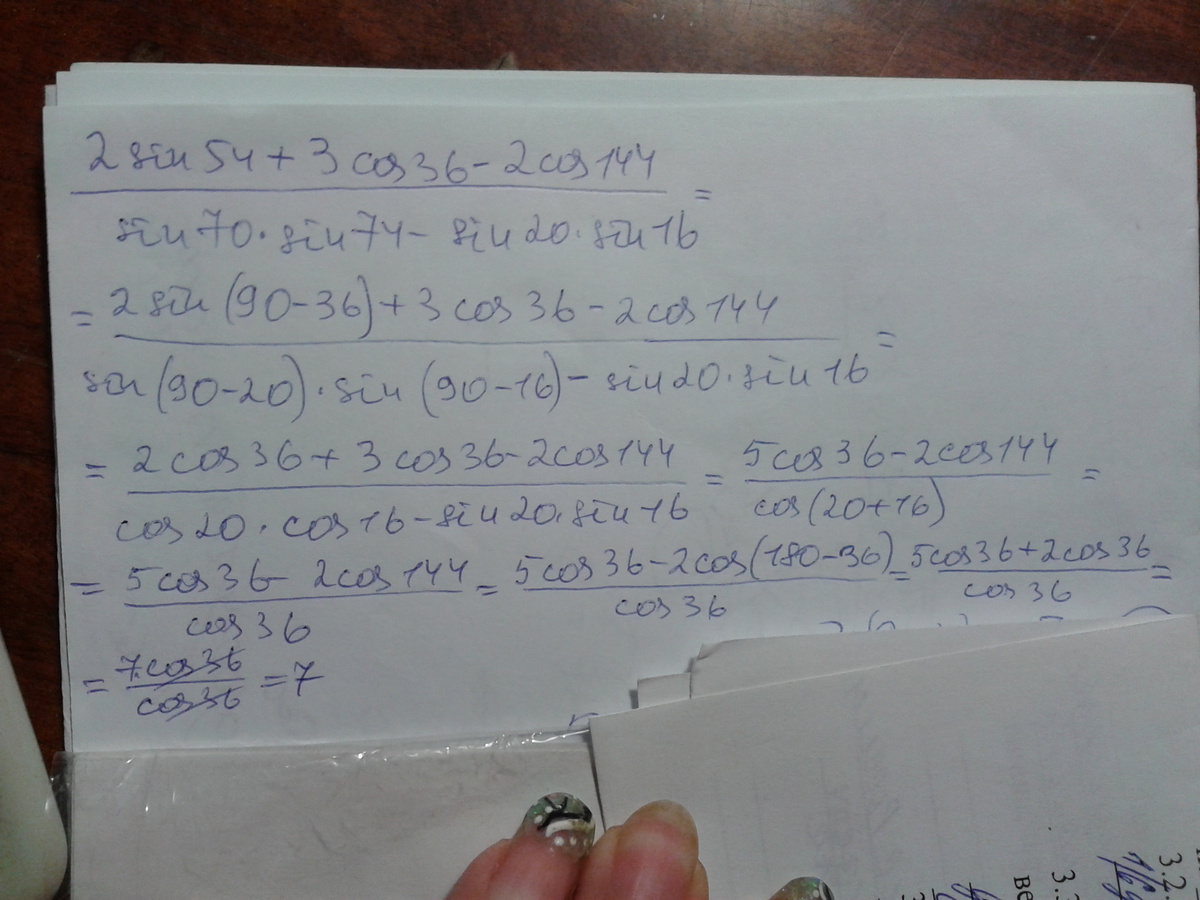 2 sin 54 + 3 cos 36 - 2 cos 144
=
sin 70 · sin 74 - sin 20 · sin 16
= 2 sin (90-36) + 3 cos 36 - 2 cos 144
=
sin (90-20) · sin (90-16) - sin 20 · sin 16
= 2 cos 36 + 3 cos 36 - 2 cos 144 = 5 cos 36 - 2 cos 144 =
cos 20 · cos 16 - sin 20 · sin 16 cos (20+16)
= 5 cos 36 - 2 cos 144 = 5 cos 36 - 2 cos (180-36) = 5 cos 36 + 2 cos 36 =
cos 36 cos 36 cos 36
= 7·cos 36 = 7
cos 36
3.2.
3.
ве